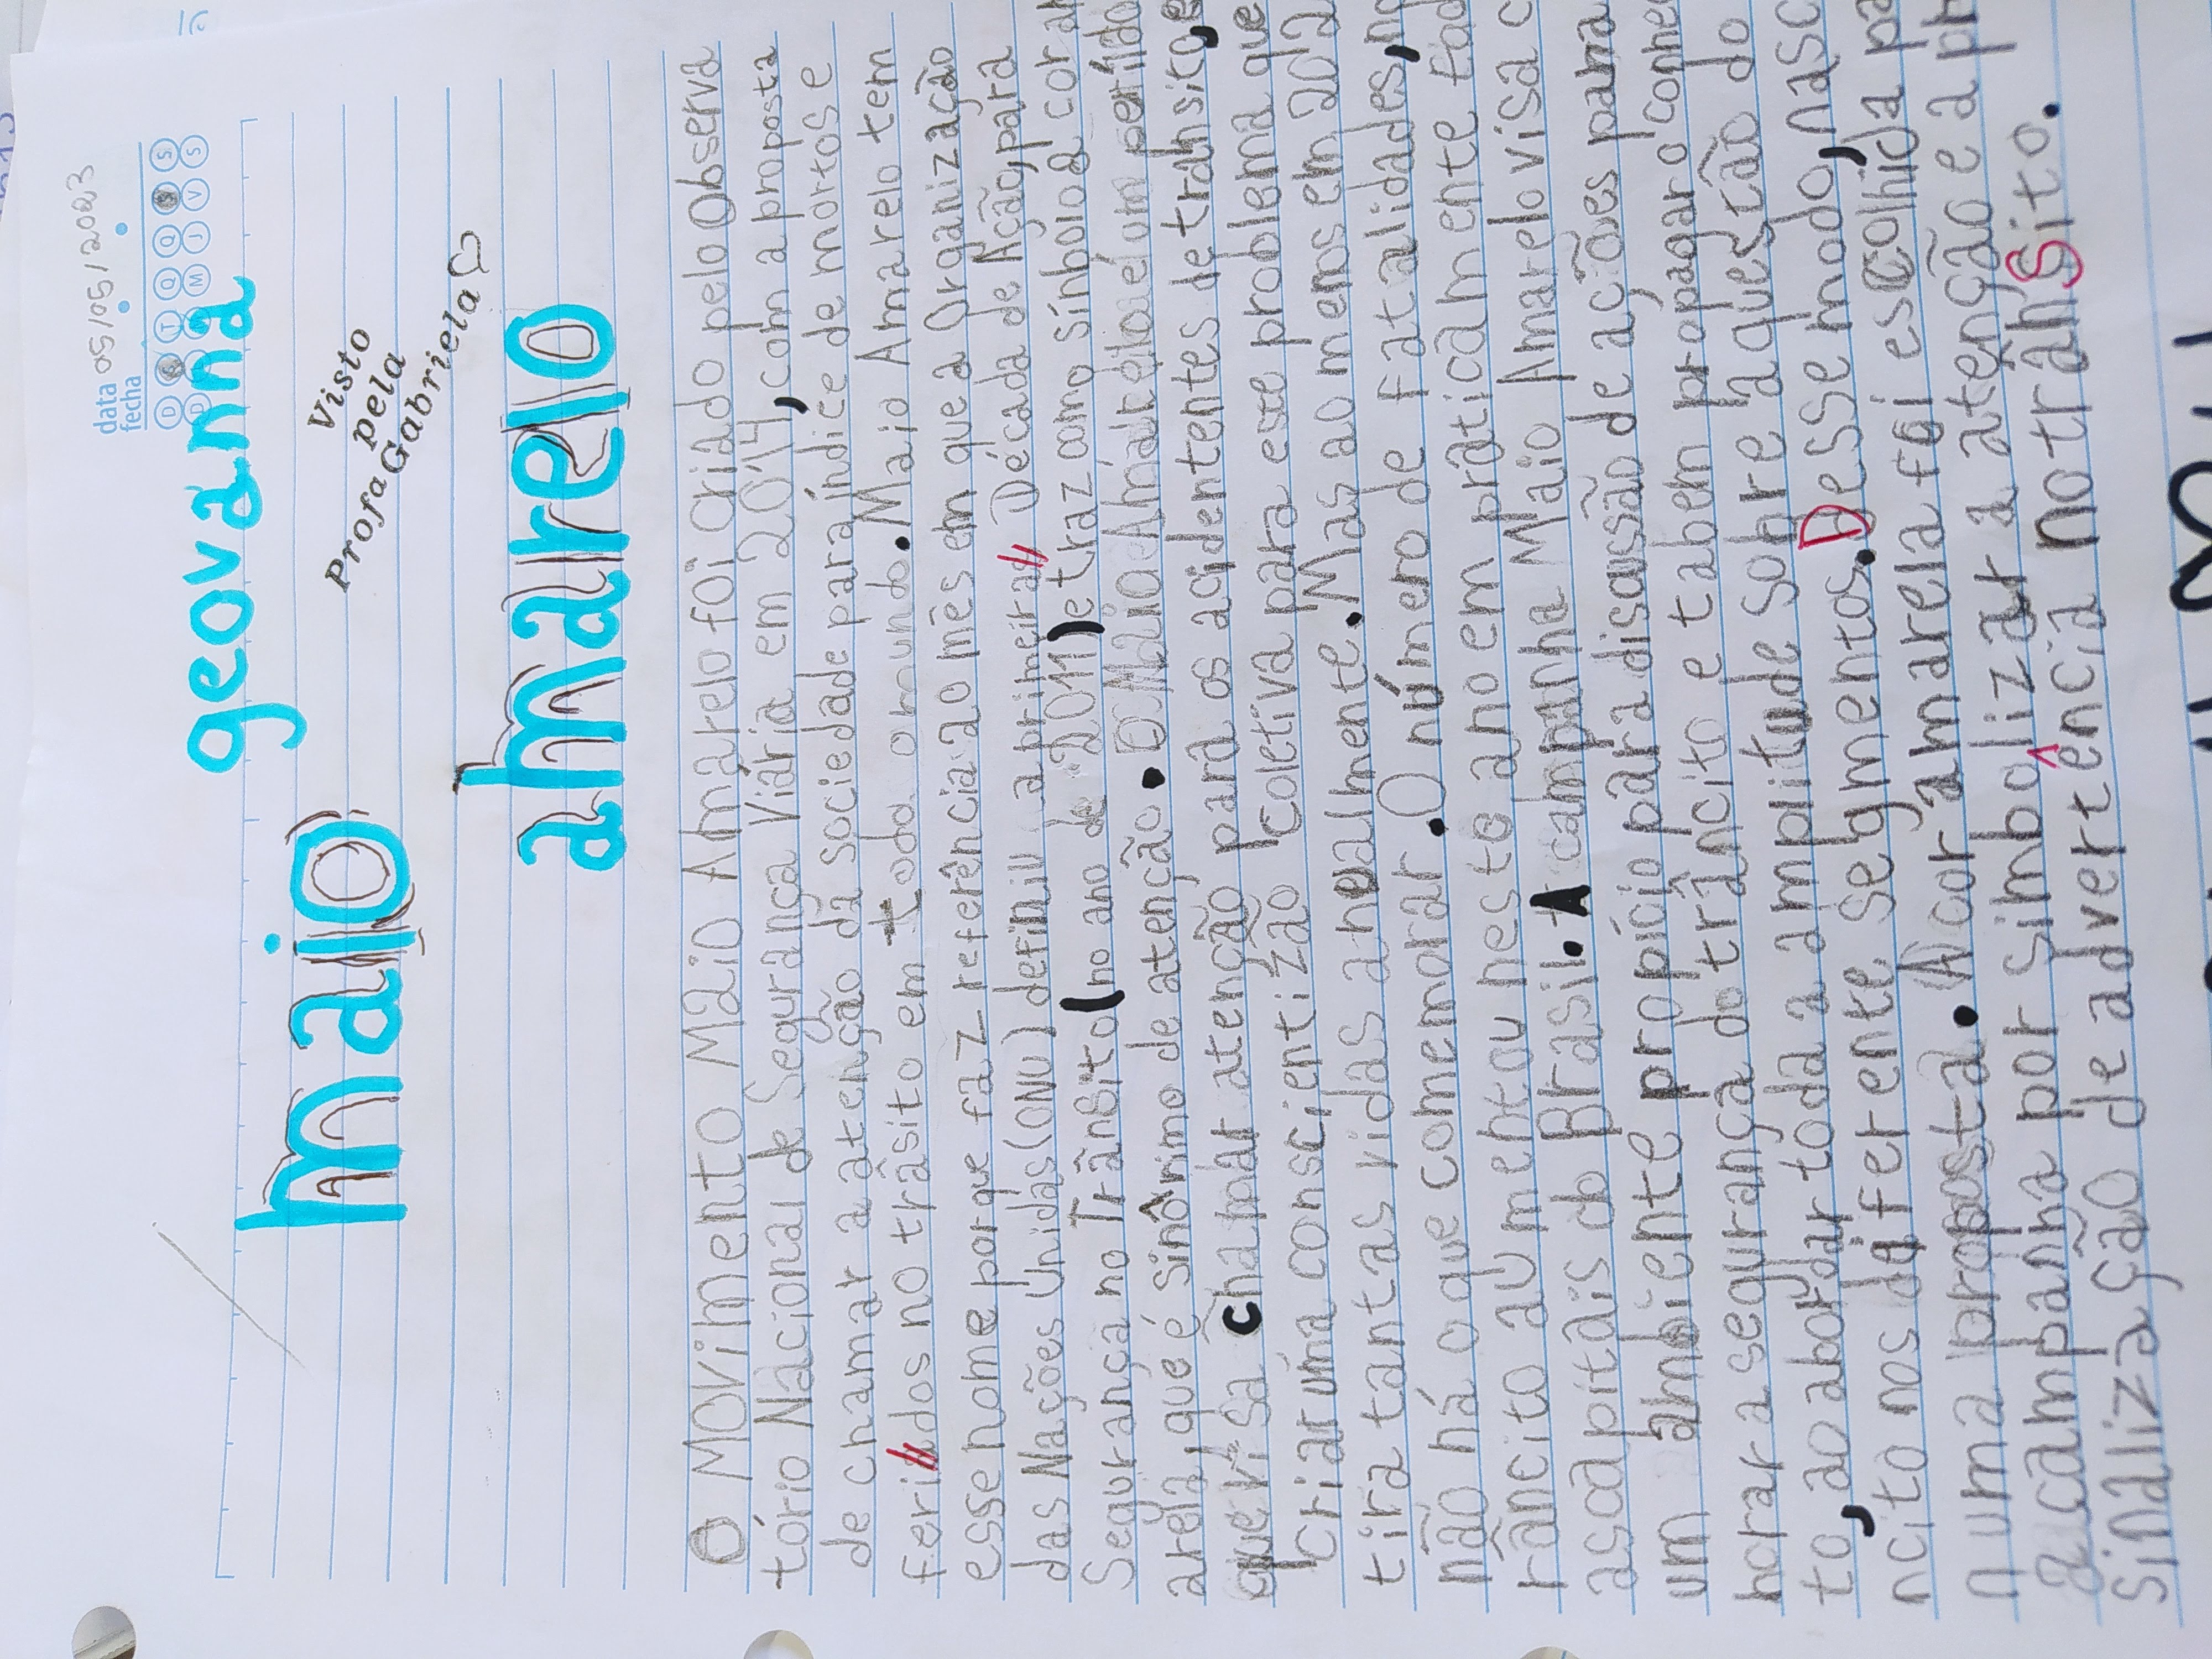 data 05/05/2023
fecha
D S T Q Q S S
D L M M J V S
geovanna
maio
Visto
pela
Profa Gabriela
amarelo
O MOVimento Maio Amarelo foi criado pelo Observa
tório Nacional de Segurança Viária em 2014, com a proposta
de chamar a atenção da sociedade para índice de mortos e
feridos no trâsito em todo o mundo. Maio Amarelo tem
esse nome porque faz referência ao mês em que a Organização
das Nações Unidas (ONU) definiu a primeira Década de Ação, para
Segurança no Trânsito (no ano de 2011) e traz como sínbolo a cor am
arela, que é sinônimo de atenção. O Maio Amarelo é um período
que visa chamar atenção para os acidentes de trânsito, e
criar uma conscientizão coletiva para este problema que
tira tantas vidas anualmente. Mas ao menos em 202
não há o que comemorar. O número de fatalidades, no
râncito aumentou neste ano em praticamente tod
as capitais do Brasil. A campanha Maio Amarelo visa c
um ambiente propício para discusão de ações para
horar a segurança do trâncito e tabem propagar o conhe
to, ao abordar toda a amplitude sobre a questão do
ncito nos diferente segmentos. Desse modo, nasc
numa proposta. A cor amarela foi escolhida pa
a campanha por simbolizar a atenção e a
sinalização de advertência no trânsito.